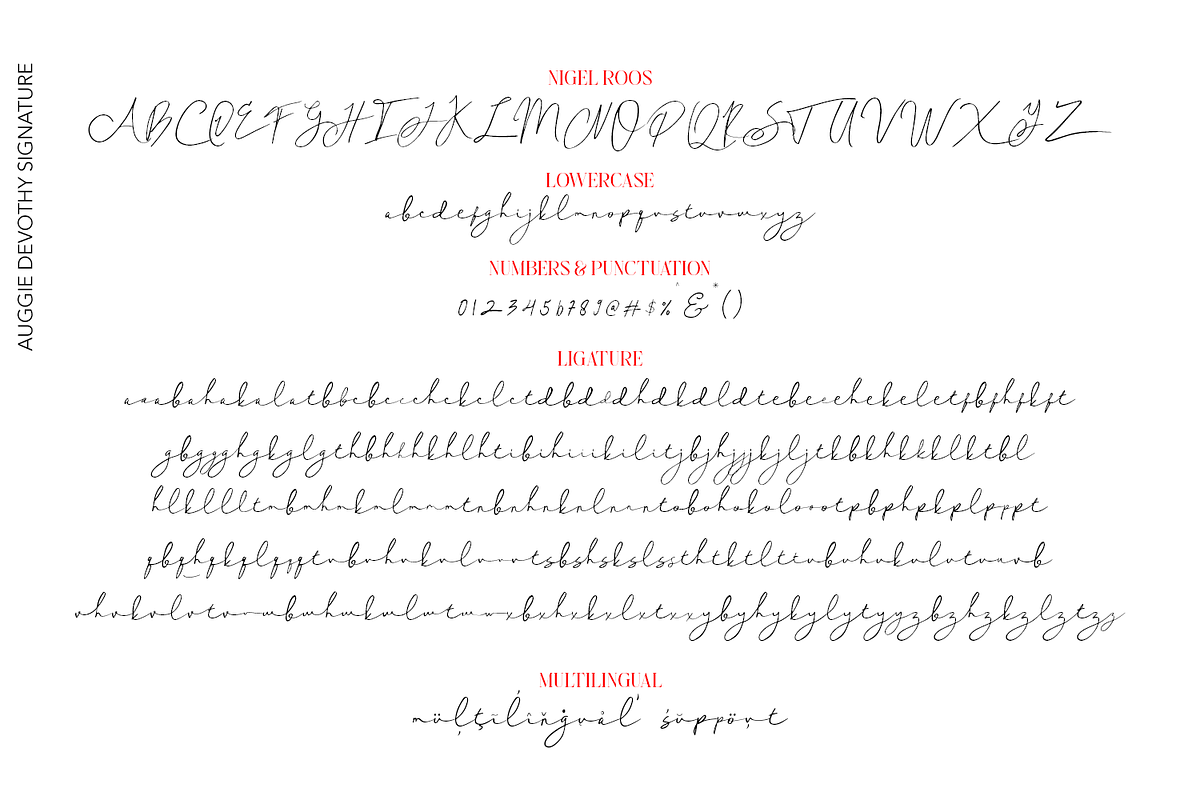 AUGGIE DEVOTHY SIGNATURE
NIGEL ROOS
ABCDEFGHIJKLMNOPQRSTUVWXYZ
LOWERCASE
abcdefghijklmnopqrstuvwxyz
NUMBERS & PUNCTUATION
0123456789@#$%^&*()
LIGATURE
aaabahakalatbbcbccchckclctdbdddhdkdldtebeeehekeletfbfhfkft
gbggghgkglgthbhhhkhlhtibihiiikilitjbjhjjjkjljtkbkhkkklktbl
hlklllltmbmhmkmlmmmtnbnhnknlnnntobohokoloootpbphpkplpppt
qbqhqkqlqqqtrbrhrkrlrrrtsbshskslssthtktlttubuhukulutuuuvb
vhvkvlvtvvvwbwhwkwlwtwwwxbxhxkxlxtxxxybyhykylytyyyzbzhzkzlztzzz
MULTILINGUAL
müļţĩĺîňġuåľ śŭppöŗt